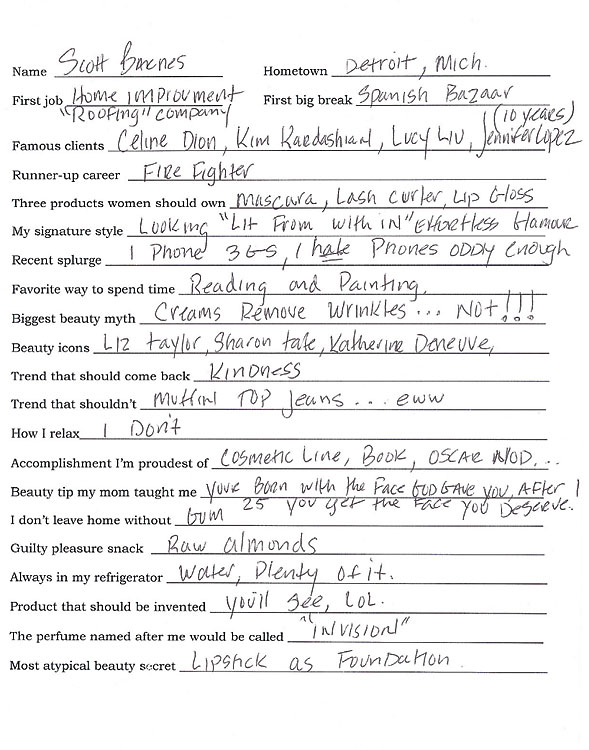 Name Scott Barnes Hometown Detroit, Mich.
First job Home improvment First big break Spanish Bazaar
"Roofing" company (10 years)
Famous clients Celine Dion, Kim Kardashian, Lucy Liu, Jennifer Lopez
Runner-up career Fire Fighter
Three products women should own Mascara, Lash curler, Lip Gloss
My signature style Looking "Lit From within" Effortless Glamour
Recent splurge I Phone 3GS, I hate Phones oddly enough
Favorite way to spend time Reading and Painting.
Biggest beauty myth Creams Remove Wrinkles... Not!!!
Beauty icons Liz taylor, Sharon tate, Katherine Deneuve,
Trend that should come back Kindness
Trend that shouldn't Muffin Top Jeans... eww
How I relax I Don't
Accomplishment I'm proudest of Cosmetic Line, Book, OSCAR NOD...
Beauty tip my mom taught me your Born with the Face GOD GAVE you, After
25 you get the Face you Deserve.
I don't leave home without Gum
Guilty pleasure snack Raw almonds
Always in my refrigerator Water, Plenty of it.
Product that should be invented you'll see, LOL.
The perfume named after me would be called "INVISION"
Most atypical beauty secret Lipstick as Foundation.